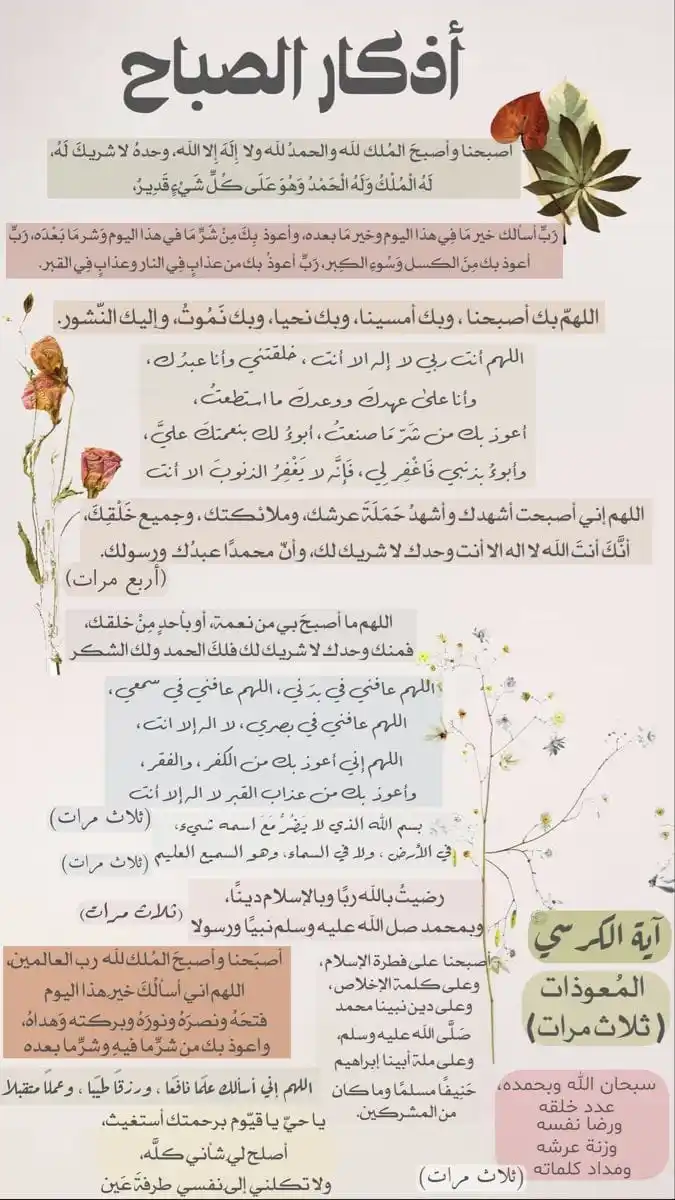 أذكار الصباح
أصبحنا وأصبحَ المُلك لله والحمدُ لله ولا إِلَهَ إِلا الله، وحدهُ لا شريكَ لَهُ،
لَهُ الْمُلْكُ وَلَهُ الْحَمْدُ وَهُوَ عَلَى كُلِّ شَيْءٍ قَدِيرُ،
رَبِّ أسألك خير مَا فِي هذا اليوم وخير مَا بعده، وأعوذ بِكَ مِنْ شَرِّ مَا في هذا اليوم وَشر مَا بَعْدَه، رَبِّ
أعوذ بك مِنَ الكسل وَسُوءِ الكِبر، رَبِّ أعوذُ بك من عذابٍ فِي النار وعذابٍ فِي القبر.
اللهمّ بك أصبحنا ، وبك أمسينا، وبك نحيا، وبك نَمُوتُ، وإليك النّشور.
اللهم أنت ربي لا إله الا أنت ، خلقتني وأنا عبدُك،
وأنا علىٰ عهدِكَ ووعدِكَ ما استطعتُ،
أعوذ بك من شَرّ مَا صنعتُ، أبوءُ لك بنعمتكَ عليَّ،
وأبوءُ بذنبي فَاغْفِر لِي، فَإِنَّه لا يَغْفِرُ الذنوبَ الا أنت
اللهم إني أصبحت أشهدك وأشهدُ حَمَلَةَ عرشك، وملائكتك، وجميع خَلْقِكَ،
أنَّكَ أنتَ اللَه لا اله الا أنت وحدك لا شريك لك، وأنّ محمدًا عبدُك ورسولك.
(أربع مرات)
اللهم ما أصبحَ بي من نعمة، أو بأحدٍ مِنْ خلقك،
فمنك وحدك لا شريك لك فلكَ الحمد ولك الشكر
اللهم عافني في بدَني، اللهم عافني في سمعي،
اللهم عافني في بصري، لا اله إلا انت،
اللهم إني أعوذ بك من الكفر ، والفقر ،
وأعوذ بك من عذاب القبر لا اله إلا أنت
(ثلاث مرات)
بسم الله الذي لا يَضُرُّ مَعَ اسمه شيء،
في الأرض ، ولا في السماء، وهو السميع العليم (ثلاث مرات)
رضيتُ باللَه ربًا وبالإسلام دينًا،
وبمحمد صل الله عليه وسلم نبيًا ورسولا
(ثلاث مرات)
آية الكرسي
المُعوذات
(ثلاث مرات)
أصبَحنا وأصبحَ المُلك لله رب العالمين،
اللهم اني أسألُكَ خير هذا اليوم
فتحَهُ ونصرَهُ ونورَهُ وبركته وَهداهُ،
واعوذ بك من شرِّ ما فيهِ وشرِّ ما بعده
أصبحنا على فطرة الإسلام،
وعلى كلمة الإخلاص،
وعلى دين نبينا محمد
صَلَّى الله عليه وسلم،
وعلى ملة أبينا إبراهيم
حَنِيفًا مسلمًا وما كان
من المشركين.
سبحان الله وبحمده،
عدد خلقه
ورضا نفسه
وزنة عرشه
ومداد كلماته
(ثلاث مرات)
اللهم إني أسألك علمًا نافعًا ، ورزقًا طيبًا ، وعملًا متقبلا
يا حيّ يا قيّوم برحمتك أستغيث،
أصلح لي شأني كلَّه،
ولا تكلني إلى نفسي طرفةَ عَين